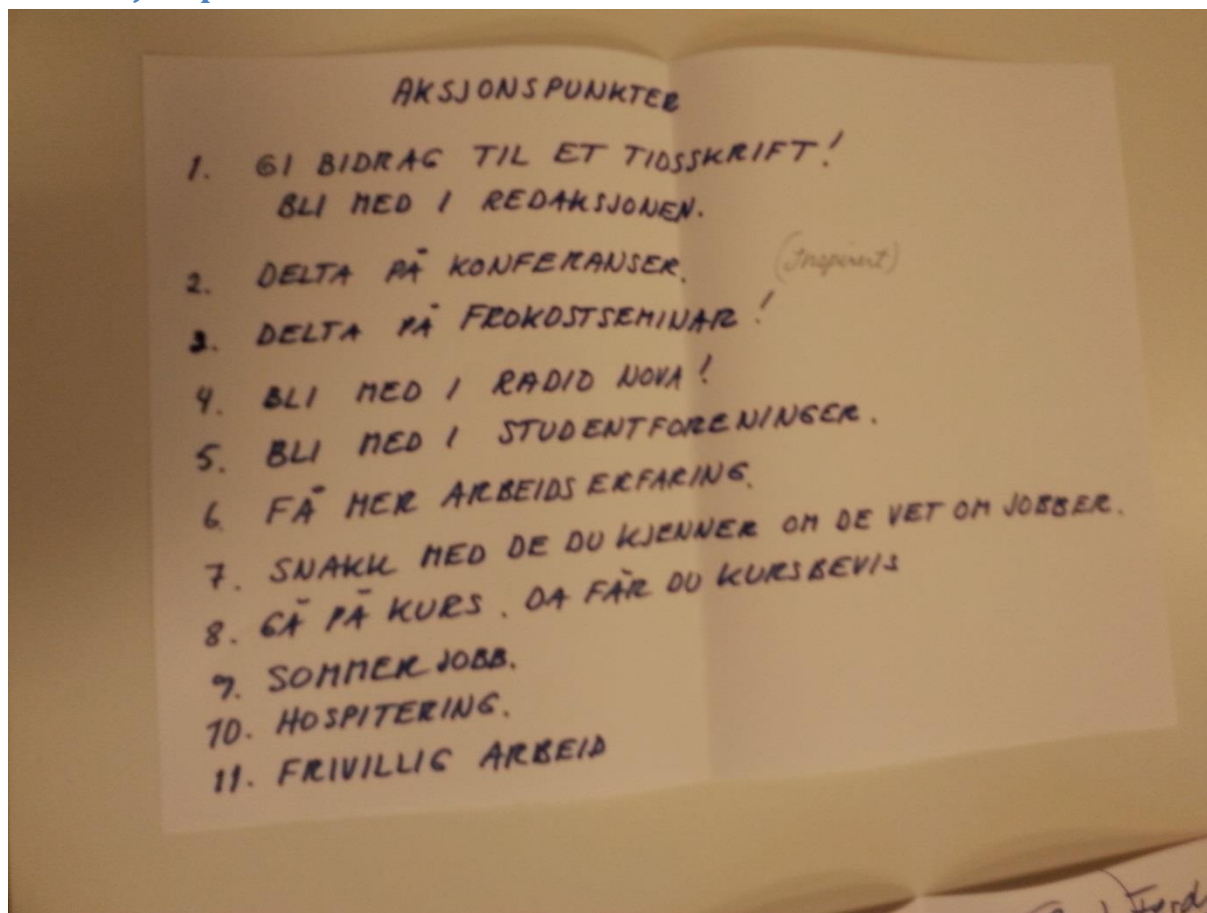 AKSJONSPUNKTER
1. GI BIDRAG TIL ET TIDSSKRIFT!
BLI MED I REDAKSJONEN.
2. DELTA PÅ KONFERANSER. (Inspirert)
3. DELTA PÅ FROKOSTSEMINAR!
4. BLI MED I RADIO NOVA!
5. BLI MED I STUDENTFORENINGER.
6. FÅ MER ARBEIDSERFARING.
7. SNAKK MED DE DU KJENNER OM DE VET OM JOBBER.
8. GÅ PÅ KURS. DA FÅR DU KURSBEVIS
9. SOMMERJOBB.
10. HOSPITERING.
11. FRIVILLIG ARBEID